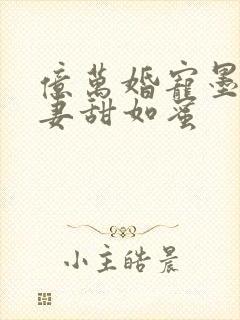 億萬婚寵墨
妻甜如蜜
小主皓晨